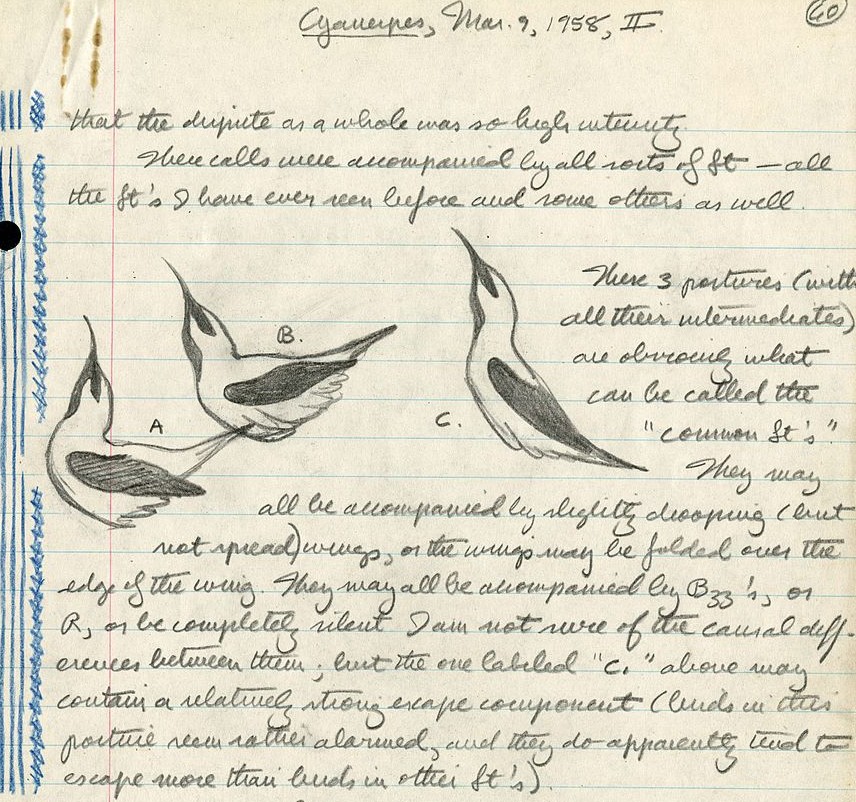 Cyanerpes, Mar. 9, 1958, II
60
that the dispute as a whole was so high intensity.
These calls were accompanied by all sorts of St — all
the St's I have ever seen before and some others as well.
These 3 postures (with
all their intermediates)
are obviously what
can be called the
"common St's".
They may
A
B.
C.
all be accompanied by slightly drooping (but
not spread) wings, or the wings may be folded over the
edge of the wing. They may all be accompanied by B33's, or
R, or be completely silent I am not sure of the causal diff-
erences between them; but the one labeled "C." above may
contain a relatively strong escape component (birds in this
posture seem rather alarmed, and they do apparently tend to
escape more than birds in other St's).